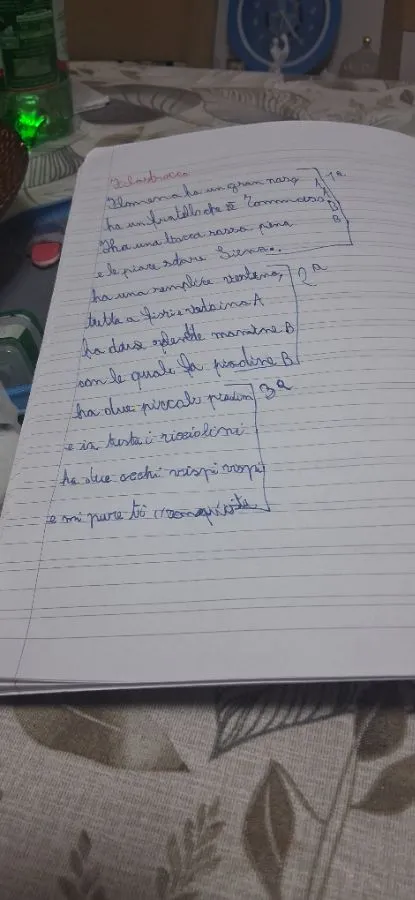 Filastrocca
Filomena ha un gran naso A 1ª
ha un fratello che è Tommaso A
Ha una bocca rossa piena B
e le piace stare Siena. B
ha una semplice vestina, 2ª
tutta a fiori e A
ha due splende manine B
con le quale fa piadine B
ha due piccoli piedini 3ª
e in testa i ricciolini
ha due occhi vispi vispi
e mi pure ti conquista